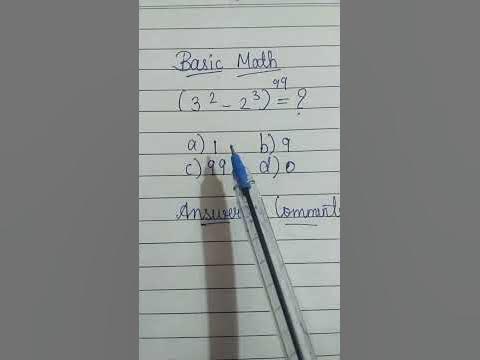 Basic Math
(3² - 2³)⁹⁹ = ?
a) 1 b) 9
c) 99 d) 0
Answer Comment